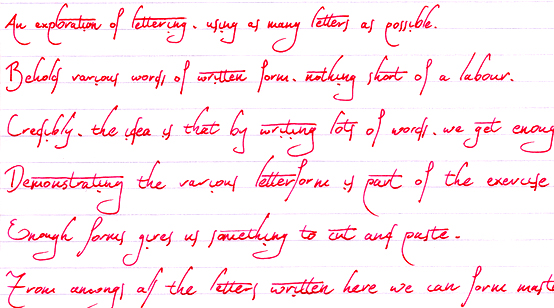 An exploration of lettering. using as many letters as possible.
Behold various words of written form. nothing short of a labour.
Credibly. the idea is that by writing lots of words. we get enoug
Demonstrating the various letterform is part of the exercise
Enough forms gives us something to cut and paste.
From amongs all the letters written here we can form mast